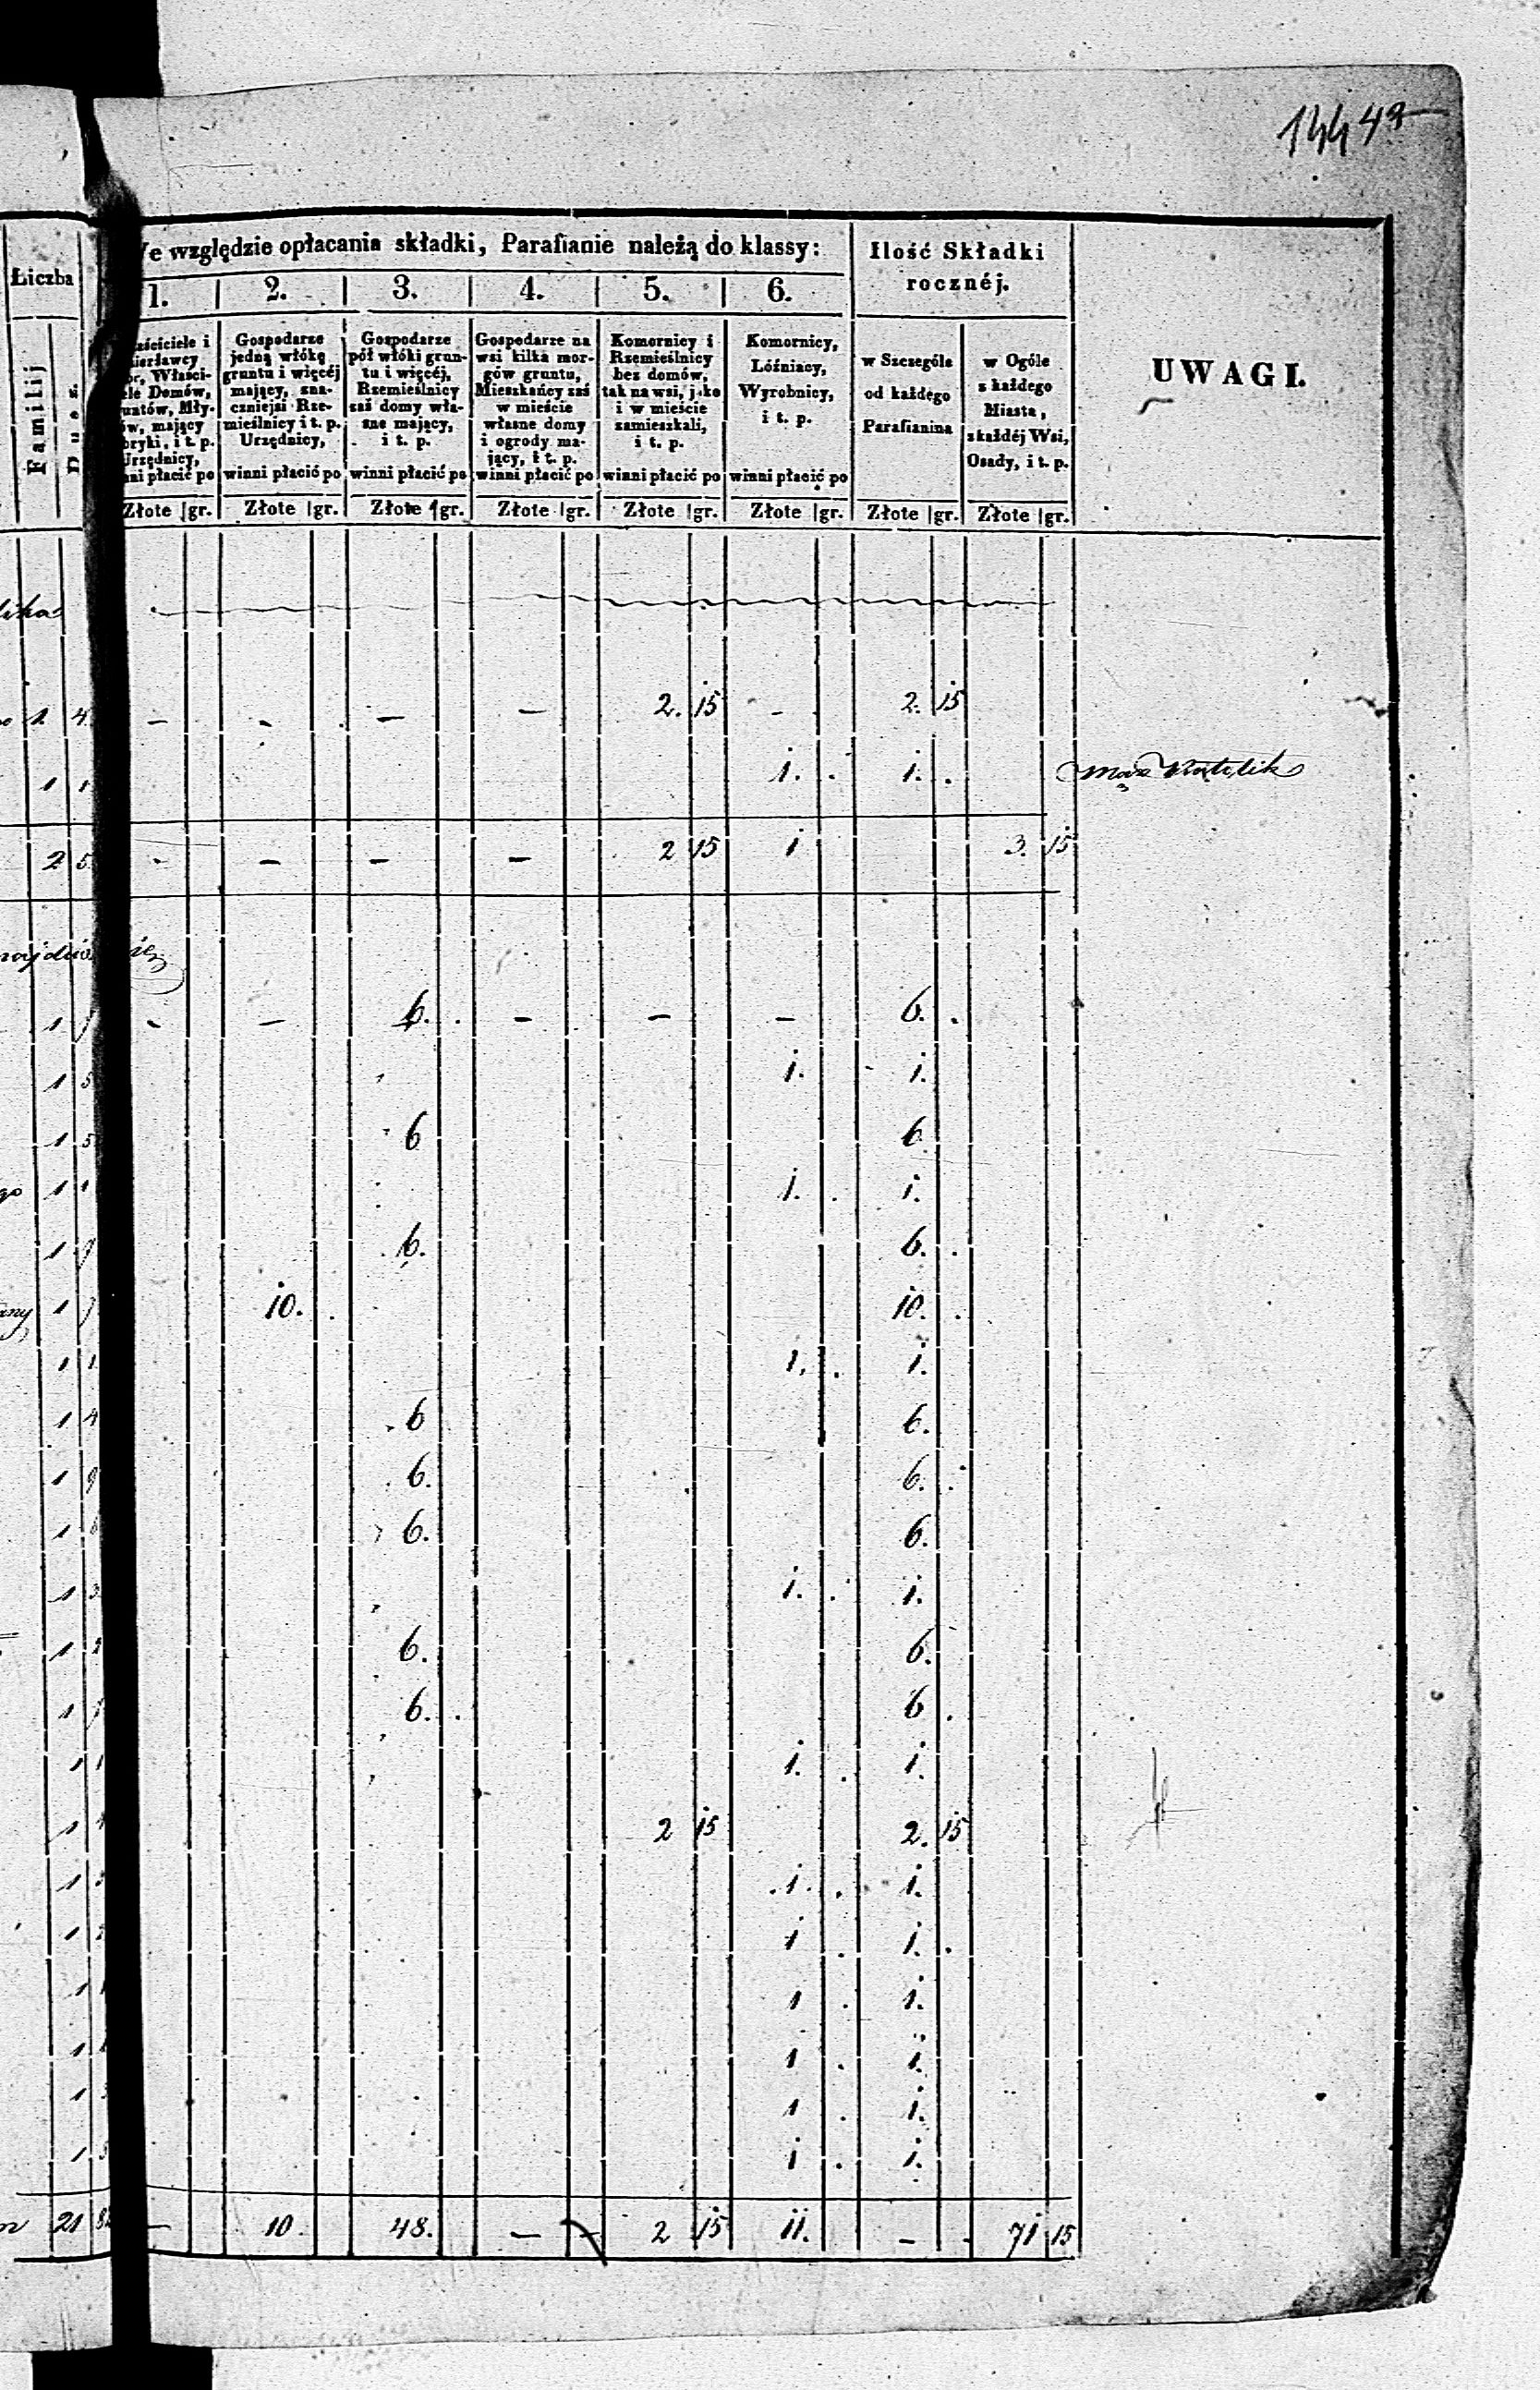 144 43
Liczba
Familij
Dusz.
We względzie opłacania składki, Parafianie należą do klassy:
Ilość Składki rocznéj.
UWAGI.
1. 2. 3. 4. 5. 6.
Właściciele i
Dzierżawcy
Właści-
ciele Domów,
Mły-
nów, mający
Fabryki, i t. p.
Urzędnicy,
winni płacić po
Gospodarze
jedną włókę
gruntu i więcéj
mający, zna-
czniejsi Rze-
mieślnicy i t. p.
Urzędnicy,
winni płacić po
Gospodarze
pół włóki grun-
tu i więcéj,
Rzemieślnicy
zaś domy wła-
sne mający,
i t. p.
winni płacić po
Gospodarze na
wsi kilka mor-
gów gruntu,
Mieszkańcy zaś
w mieście
własne domy
i ogrody ma-
jący, i t. p.
winni płacić po
Komornicy i
Rzemieślnicy
bez domów,
tak na wsi, jako
i w mieście
zamieszkali,
i t. p.
winni płacić po
Komornicy,
Lóźniacy,
Wyrobnicy,
i t. p.
winni płacić po
w Szczególe
od każdego
Parafianina
w Ogóle
z każdego
Miasta,
z każdéj Wsi,
Osady, i t. p.
Złote gr. Złote gr. Złote gr. Złote gr. Złote gr. Złote gr. Złote gr. Złote gr.
1 4 – – – – 2. 15 – 2. 15
1 1 1. . 1. . mąż Katolik
2 5 – – – – 2 15 1 3. 15
1 – – 6. . – – – 6. .
1 5 1. 1.
1 5 6 6
1 1 1. . 1.
1 6. 6. .
1 10. . 10. .
1 1 1. . 1.
1 4 6 6.
1 9 6. 6. .
1 6. 6.
1 3 1. . 1.
1 2 6. 6.
1 6. . 6 .
1 1 1. . 1.
1 4 2 15 2. 15
1 1. . 1.
1 2 1 . 1. .
1 1 1 . 1.
1 1 . 1.
1 1 . 1.
1 1 . 1.
21 – 10. 48. – – 2 15 11. – . 71 15